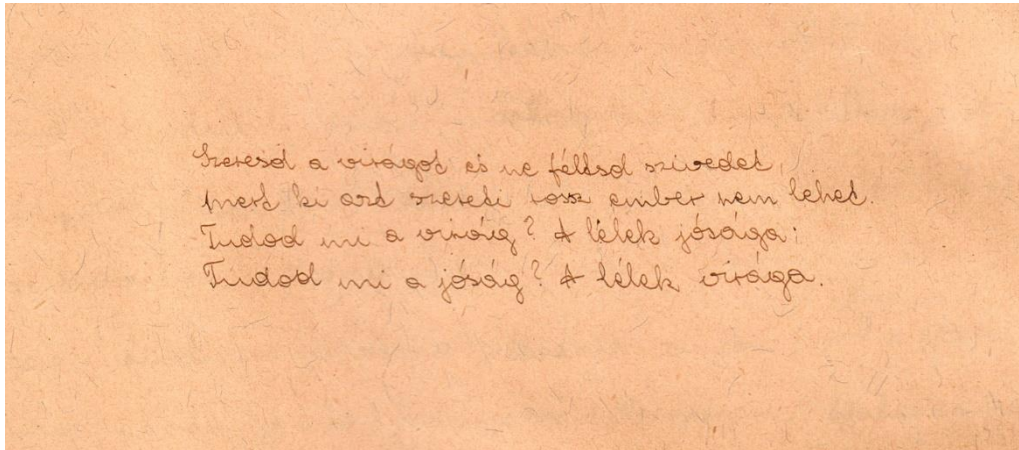 Szeresd a virágot és ne féltsd szivedet,
mert ki azt szereti rossz ember nem lehet.
Tudod mi a virág? A lélek jósága;
Tudod mi a jóság? A lélek virága.